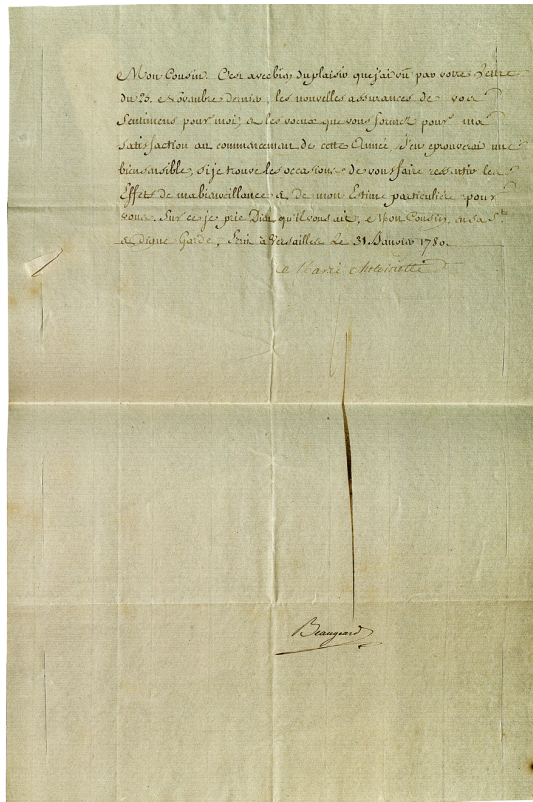 Mon Cousin. C'est avec bien du plaisir que j'ai vû par votre Lettre
du 20. Novembre dernier, les nouvelles assurances de vos
Sentimens pour moi, & les voeux que vous formés pour ma
satisfaction au commencemen de cette Année. J'en eprouverai une
bien sensible, si je trouve les occasions de vous faire ressentir les
Effets de ma bienveillance & de mon Estime particuliere pour
vous. Sur ce je prie Dieu qu'il vous ait, Mon Cousin, en sa Ste
& digne Garde, Ecrit à Versailles Le 31. Janvier 1780.
Marie Antoinette
Beaugeard